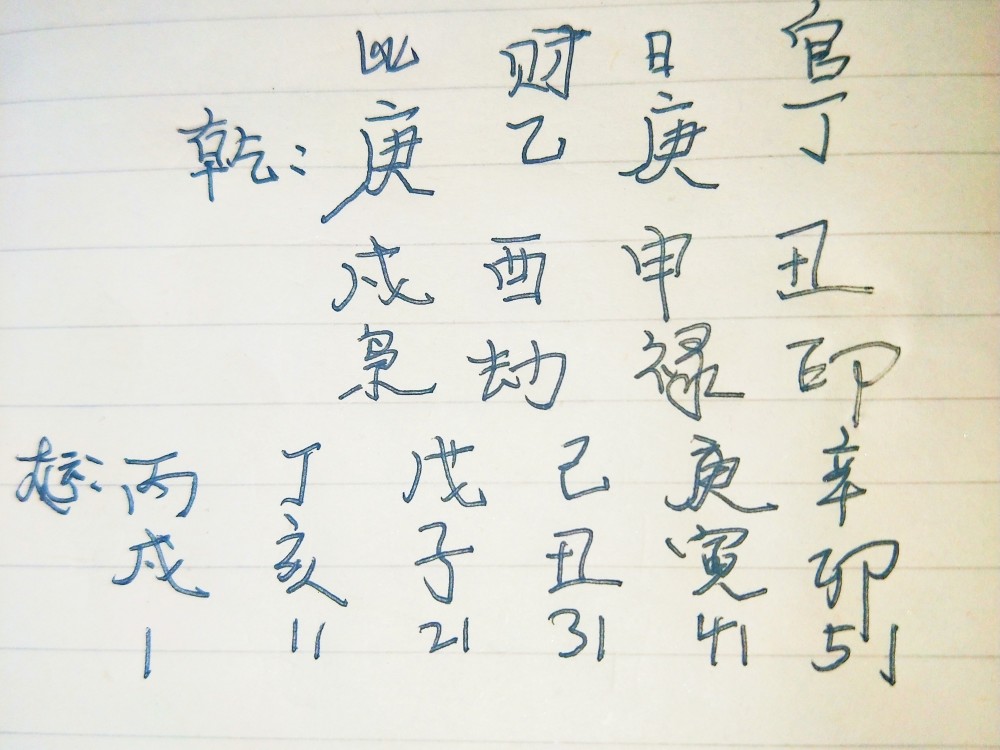 比 财 日 官
乾: 庚 乙 庚 丁
戌 酉 申 丑
枭 劫 禄 印
大运: 丙 丁 戊 己 庚 辛
戌 亥 子 丑 寅 卯
1 11 21 31 41 51